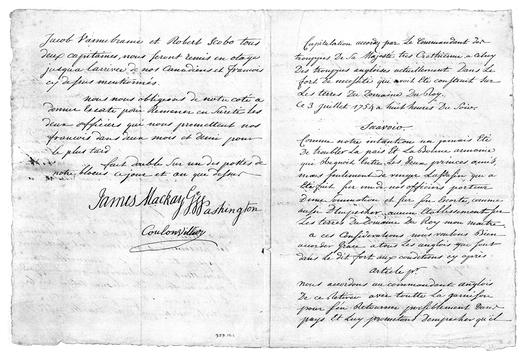 Jacob Vannebrame et Robert Scobo tous
deux capitaines, nous seront remis en otage
jusqua Larrivée de nos Canadiens et francois
cy dessus mentionnés.
nous nous obligeons de notre coté a
donner Escorte pour Ramener en sureté les
deux officiers qui nous promettent nos
francois dans deux mois et demi pour
le plus tard
fait double Sur un des postes de
notre blocus ce jour et an que dessus
James Mackay Go Washington
Coulon Villier
Capitulation accordée par Le Commandant des
trouppes de Sa Majesté tres Chrétienne a Celuy
Des trouppes angloises actuellement Dans le
fort de nécessité qui avoit Eté Construit Sur
Les terres du Domaine Du Roy.
Ce 3 juillet 1754 a huit heures Du Soir.
Sçavoir
Comme notre intention na jamais Eté
de troubler La paix et La Bonne armonie
qui Regnoit Entre Les Deux princes amis
mais seulement de venger Lassassin qui a
Eté fait sur un de nos officiers porteur
D'une sommation et sur son Escorte, comme
aussy D'empecher aucun Etablissement sur
Les terres du Domaine du Roy mon maitre
a ces Considerations nous voulons Bien
accorder Grace a tous Les anglois qui sont
dans le dit fort aux conditions cy après
Article 1er
nous accordons au commandant anglois
De se Retirer avec toutte La garnison
pour sen Retourner paisiblement dans son
pays et Luy promettons D'empecher qu'il